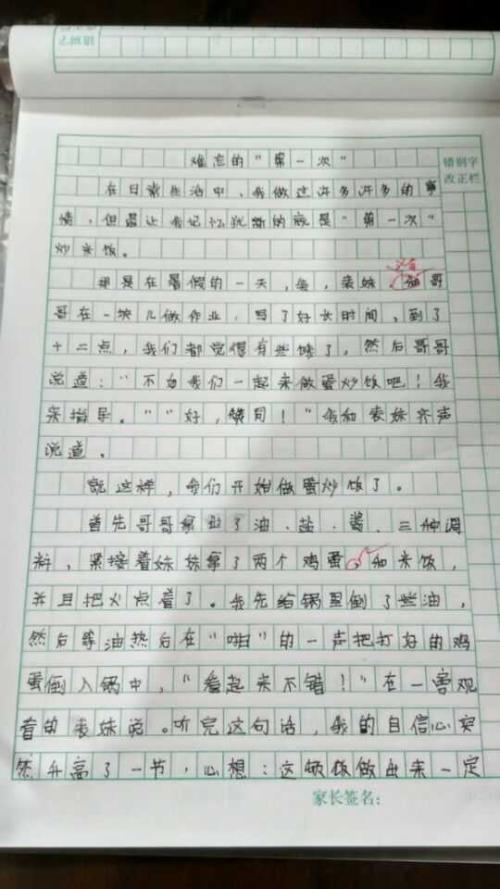 难忘的"第一次"
错别字
改正栏
在日常生活中，我做过许多许多的事
情，但最让我记忆犹新的就是"第一次"
炒米饭。
那是在暑假的一天，我，表妹和哥
哥在一块儿做作业，写了好长时间，到了
十二点，我们都觉得有些饿了，然后哥哥
说道："不如我们一起来做蛋炒饭吧！我
来指导。""好，赞同！"我和表妹齐声
说道。
就这样，我们开始做蛋炒饭了。
首先哥哥拿出了油、盐、酱、三种调
料，紧接着妹妹拿了两个鸡蛋和米饭，
并且把火点着了。我先给锅里倒了些油，
然后等油热后在"啪"的一声把打好的鸡
蛋倒入锅中，"看起来不错！"在一旁观
看的表妹说。听完这句话，我的自信心突
然升高了一节，心想：这顿饭做出来一定
家长签名：